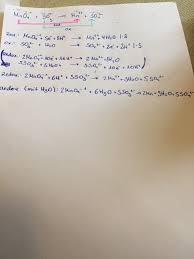 MnO₄⁻ + SO₃²⁻ → Mn²⁺ + SO₄²⁻
ox
Red.: MnO₄⁻ + 5e⁻ + 8H⁺ → Mn²⁺ 4H₂O |·2
ox.: SO₃²⁻ + H₂O → SO₄²⁻ + 2e⁻ + 2H⁺ |·5
Redox: 2MnO₄⁻ + 10e⁻ + 16H⁺ → 2Mn²⁺ + 8H₂O
5SO₃²⁻ + 5H₂O → 5SO₄²⁻ + 10e⁻ + 10H⁺
Redox: 2MnO₄⁻ + 6H⁺ + 5SO₃²⁻ → 2Mn²⁺ + 3H₂O + 5SO₄²⁻
andere (mit H₂O): 2MnO₄⁻ + 6H₂O + 5SO₃²⁻ → 2Mn + 9H₂O + 5SO₄²⁻